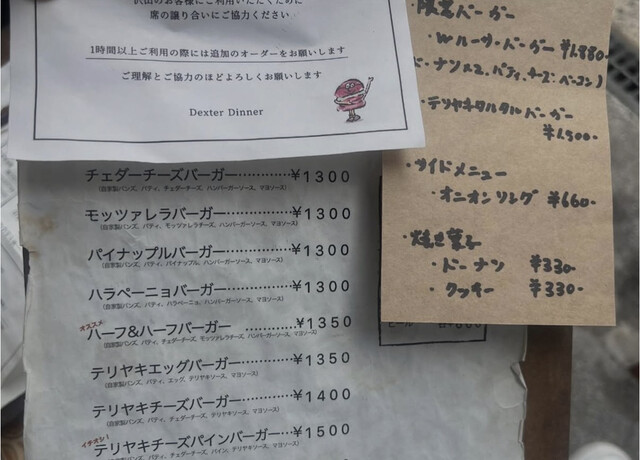 沢山のお客様にご利用いただくために
席の譲り合いにご協力ください
1時間以上ご利用の際には追加のオーダーをお願いします
ご理解とご協力のほどよろしくお願いします
Dexter Dinner
チェダーチーズバーガー……………¥1300
(自家製バンズ、パティ、チェダーチーズ、ハンバーガーソース、マヨソース)
モッツァレラバーガー……………¥1300
(自家製バンズ、パティ、モッツァレラチーズ、ハンバーガーソース、マヨソース)
パイナップルバーガー……………¥1300
(自家製バンズ、パティ、パイナップル、ハンバーガーソース、マヨソース)
ハラペーニョバーガー……………¥1300
(自家製バンズ、パティ、ハラペーニョ、ハンバーガーソース、マヨソース)
オススメ
ハーフ&ハーフバーガー …………¥1350
(自家製バンズ、パティ、チェダーチーズ、モッツァレラチーズ、ハンバーガーソース、マヨソース)
テリヤキエッグバーガー…………¥1350
(自家製バンズ、パティ、エッグ、テリヤキソース、マヨソース)
テリヤキチーズバーガー…………¥1400
(自家製バンズ、パティ、チェダーチーズ、テリヤキソース、マヨソース)
イチオシ!
テリヤキチーズパインバーガー…¥1500
(自家製バンズ、パティ、チェダーチーズ、パイン、テリヤキソース、マヨソース)
・限定バーガー
・Wルーサーバーガー ¥1,880-
(ドーナツ×2、パティ、チーズ、ベーコン)
・テリヤキタルタルバーガー
¥1,500-
・サイドメニュー
・オニオンリング ¥660-
・焼き菓子
・ドーナツ ¥330-
・クッキー ¥330-
ビール